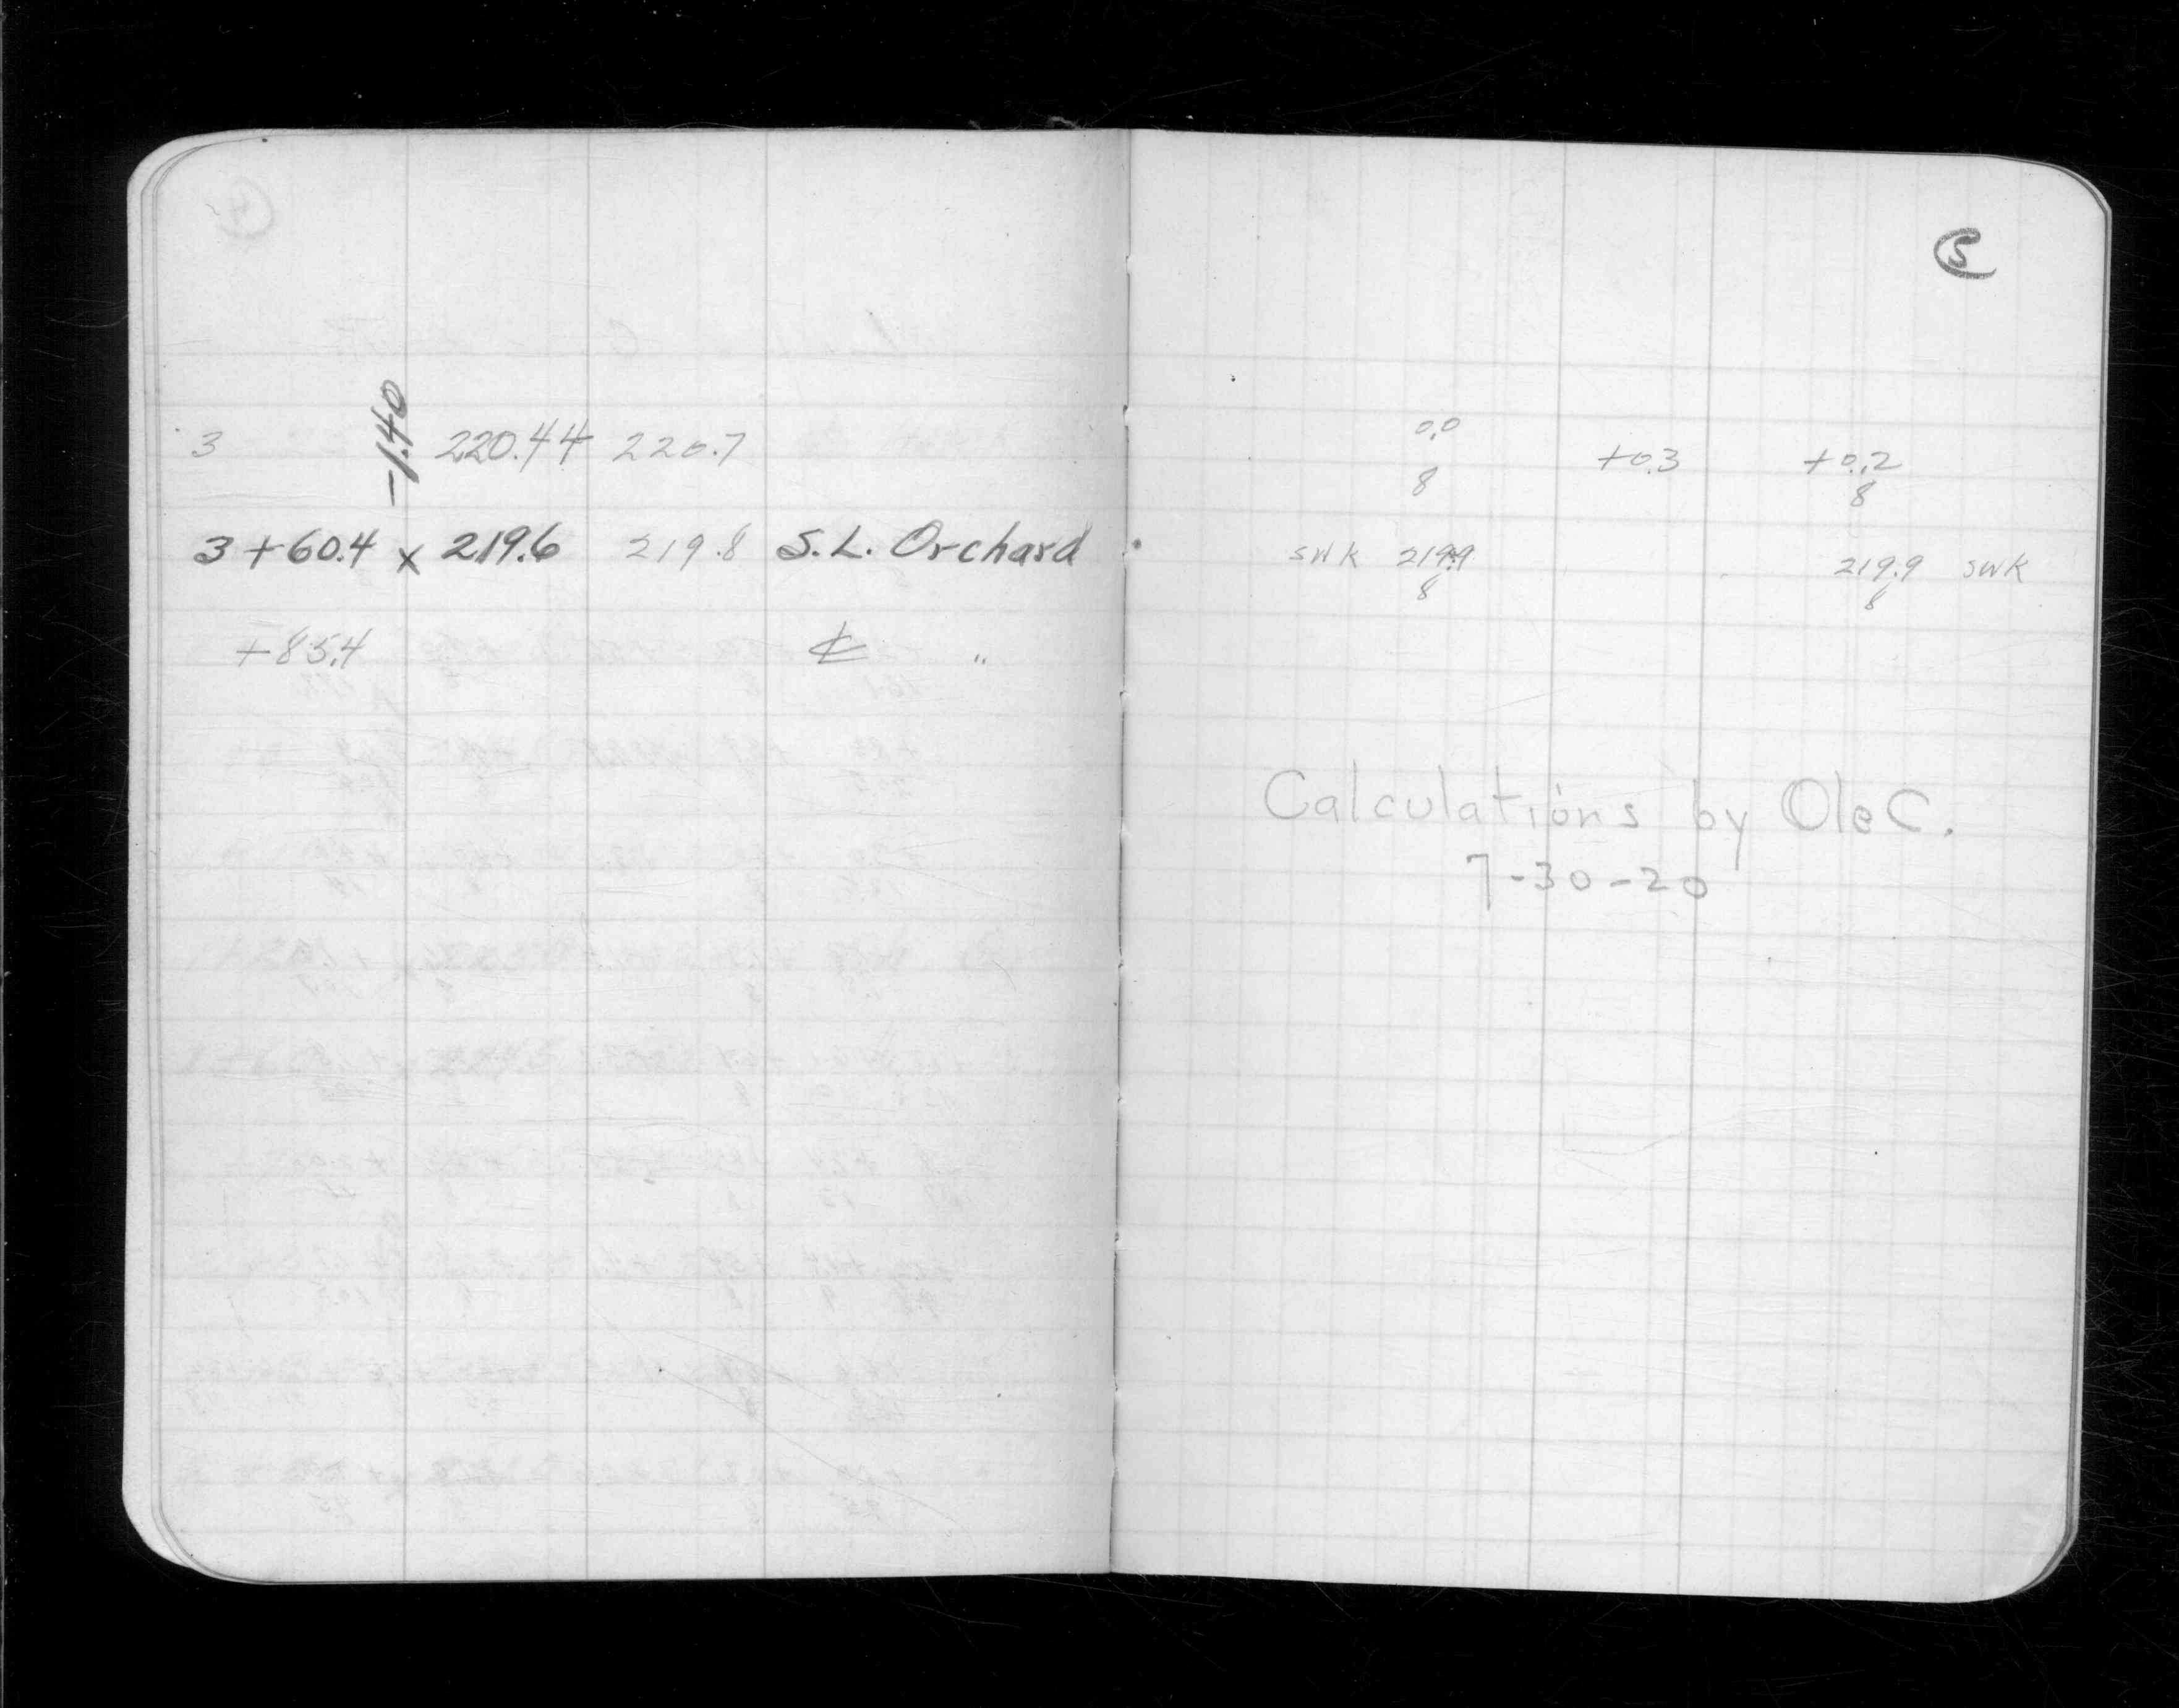 5
-1.40
3 220.44 220.7
0.0 +0.3 +0.2
8 8
3+60.4 x 219.6 219.8 S.L. Orchard
SWK 219.9 219.9 SWK
8 8
+85.4 ℄ "
Calculations by Ole C.
7-30-20